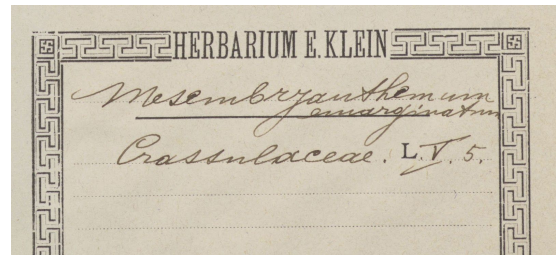 HERBARIUM E. KLEIN
Mesembryanthemum
emarginatum
Crassulaceae. L. V. 5.